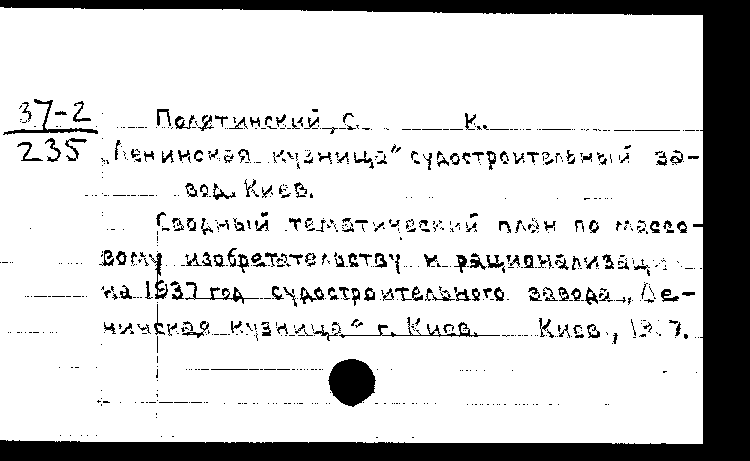 37-2
235
Полятинский, С. К.
„Ленинская кузница“ судостроительный за-
вод. Киев.
Сводный тематический план по массо-
вому изобретательству и рационализации
на 1937 год судостроительного завода „Ле-
нинская кузница“ г. Киев. Киев, 1937.